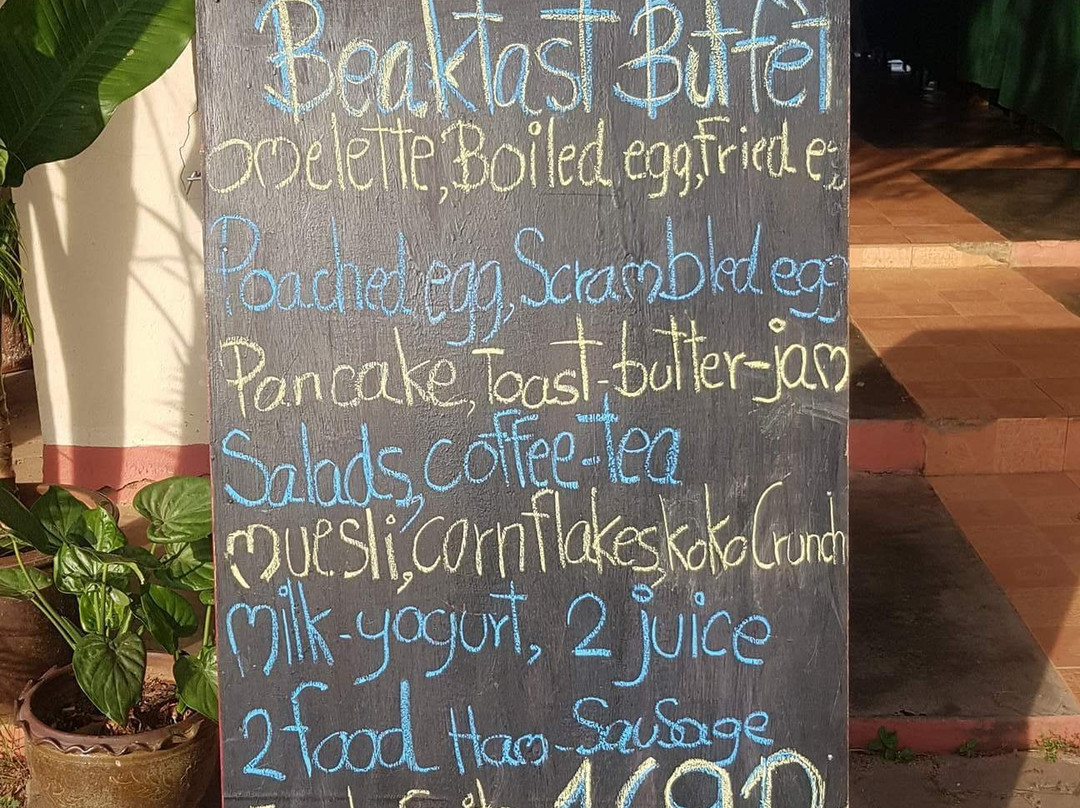 Beaktast Buffet
omelette, Boiled egg, Fried eg
Poached egg, Scrambled egg
Pancake, Toast-butter-jam
Salads, coffee-tea
muesli, cornflakes, koko Crunch
milk-yogurt, 2 juice
2 food Ham-Sausage